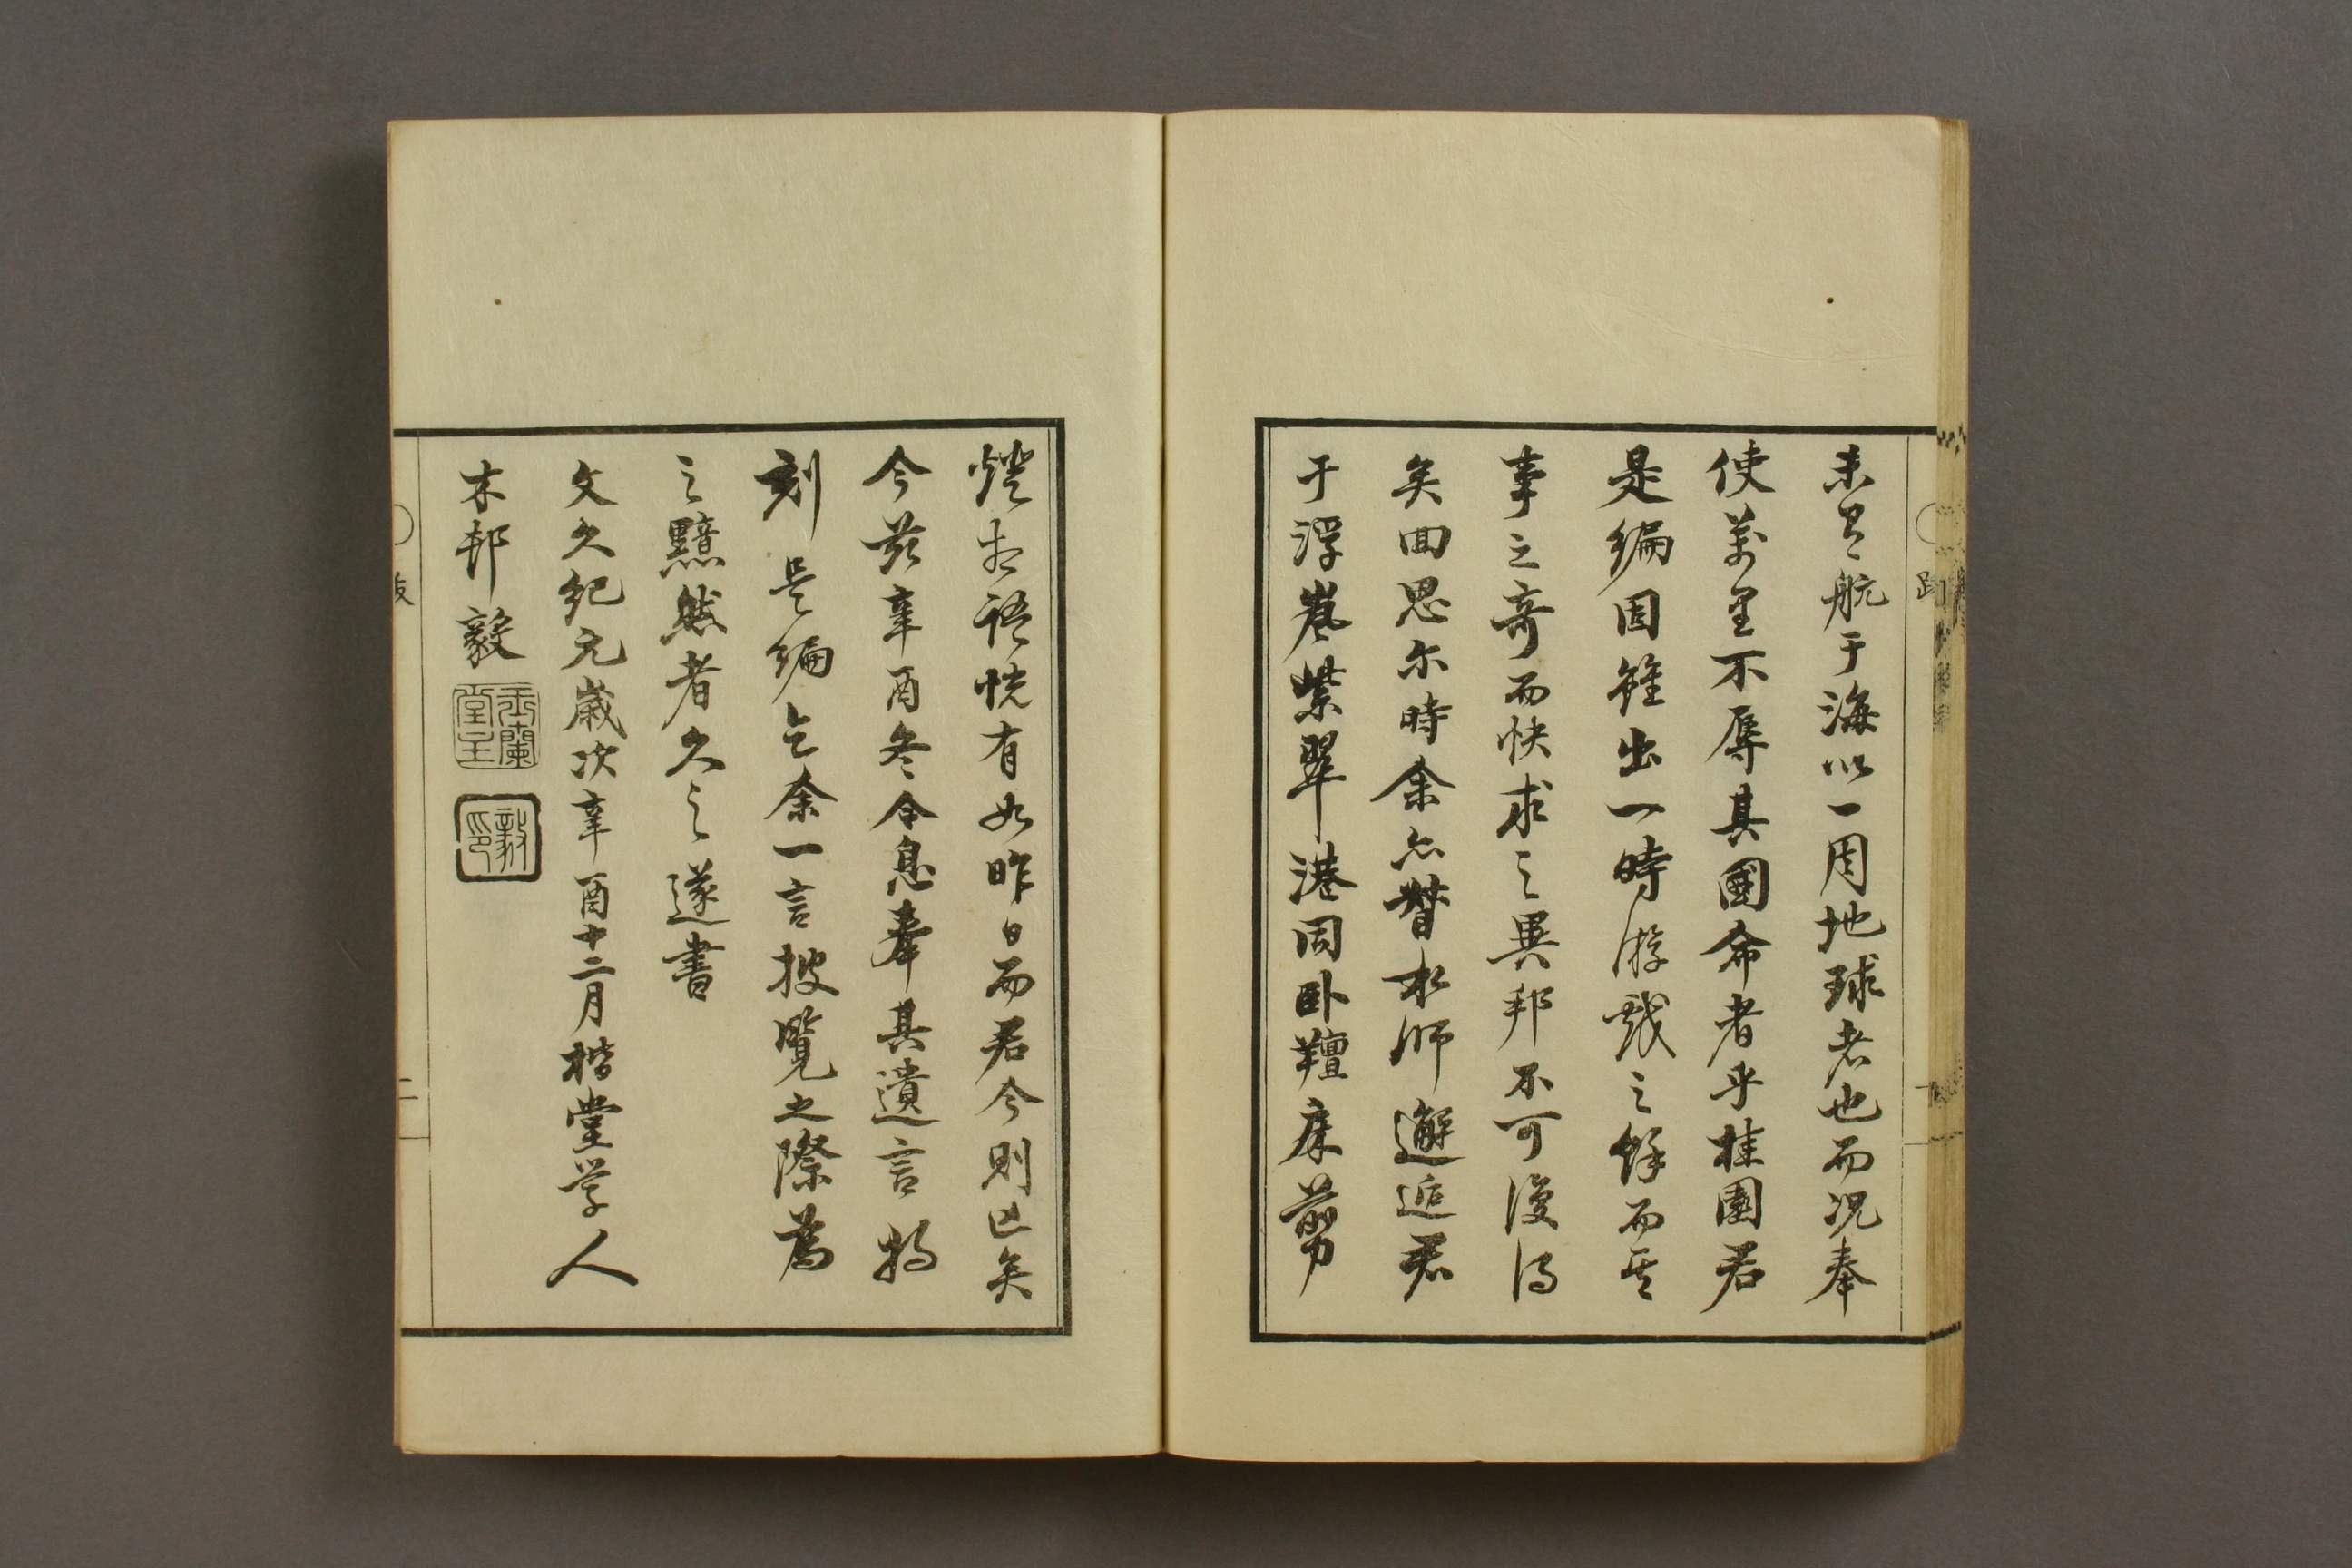 未有航于海以一周地球者也而況奉
使萬里不辱其國命者乎桂園君
是編固雖出一時游戲之餘而其
事之奇而快求之異邦不可復得
矣回思尓時余亦督水師邂逅君
于浮嵐紫翠港同臥氊床剪
燈共語恍有如昨日而君今則亡矣
今茲辛酉冬令息奉其遺言將
刻是編乞余一言披覽之際為
之黯然者久之遂書
文久紀元歲次辛酉十二月楷堂学人
木邨毅
玉蘭堂主
毅印
跋
二